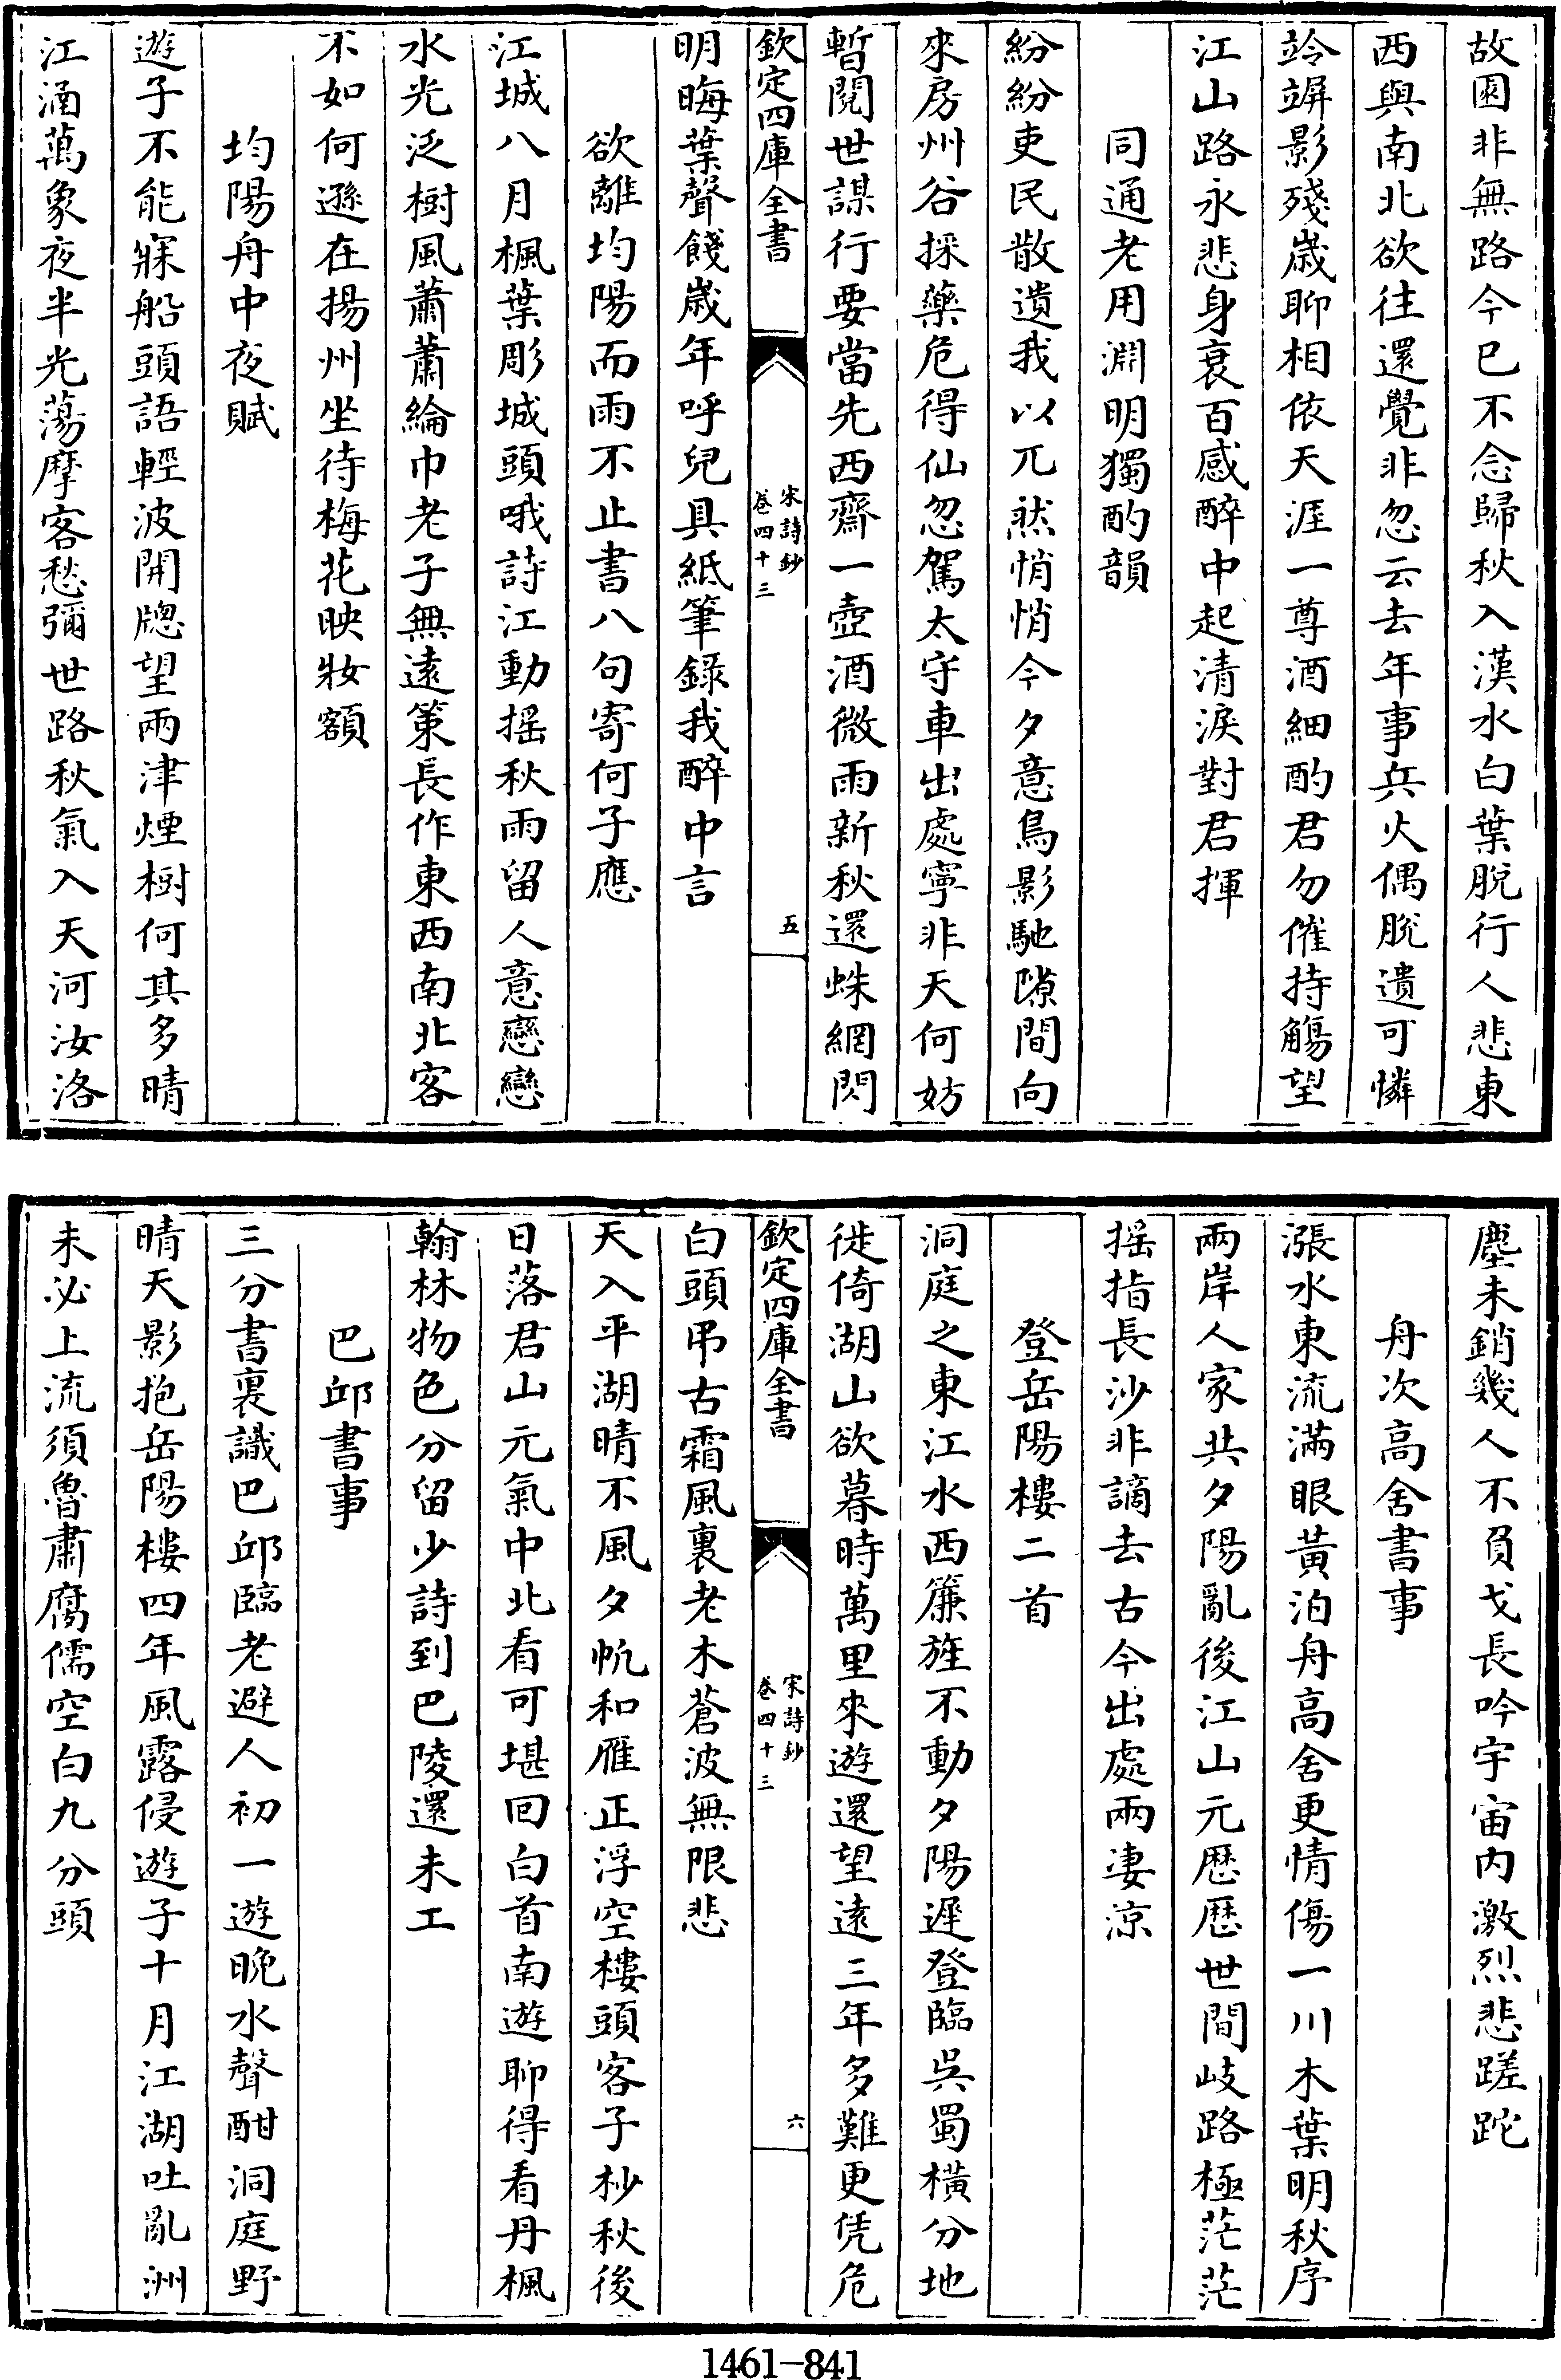 故園非無路今已不念歸秋入漢水白葉脫行人悲東
西與南北欲往還覺非忽云去年事兵火偶脫遺可憐
竛竮影殘歲聊相依天涯一尊酒細酌君勿催持觴望
江山路永悲身衰百感醉中起清淚對君揮
同通老用淵明獨酌韻
紛紛吏民散遺我以兀然悄悄今夕意鳥影馳隙間向
來房州谷採藥危得仙忽駕太守車出處寧非天何妨
暫閱世謀行要當先西齋一壺酒微雨新秋還蛛網閃
欽定四庫全書
宋詩鈔
卷四十三
五
明晦葉聲餞歲年呼兒具紙筆錄我醉中言
欲離均陽而雨不止書八句寄何子應
江城八月楓葉彫城頭哦詩江動搖秋雨留人意戀戀
水光泛樹風蕭蕭綸巾老子無遠策長作東西南北客
不如何遜在揚州坐待梅花映妝額
均陽舟中夜賦
遊子不能寐船頭語輕波開牕望兩津煙樹何其多晴
江涵萬象夜半光蕩摩客愁彌世路秋氣入天河汝洛
塵未銷幾人不負戈長吟宇宙內激烈悲蹉跎
舟次高舍書事
漲水東流滿眼黃泊舟高舍更情傷一川木葉明秋序
兩岸人家共夕陽亂後江山元歷歷世間岐路極茫茫
摇指長沙非謫去古今出處兩凄涼
登岳陽樓二首
洞庭之東江水西簾旌不動夕陽遲登臨吳蜀橫分地
徙倚湖山欲暮時萬里來遊還望遠三年多難更凭危
欽定四庫全書
宋詩鈔
卷四十三
六
白頭弔古霜風裏老木蒼波無限悲
天入平湖晴不風夕帆和雁正浮空樓頭客子杪秋後
日落君山元氣中北看可堪回白首南遊聊得看丹楓
翰林物色分留少詩到巴陵還未工
巴邱書事
三分書裏識巴邱臨老避人初一遊晚水聲酣洞庭野
晴天影抱岳陽樓四年風露侵遊子十月江湖吐亂洲
未必上流須魯肅腐儒空白九分頭
1461-841